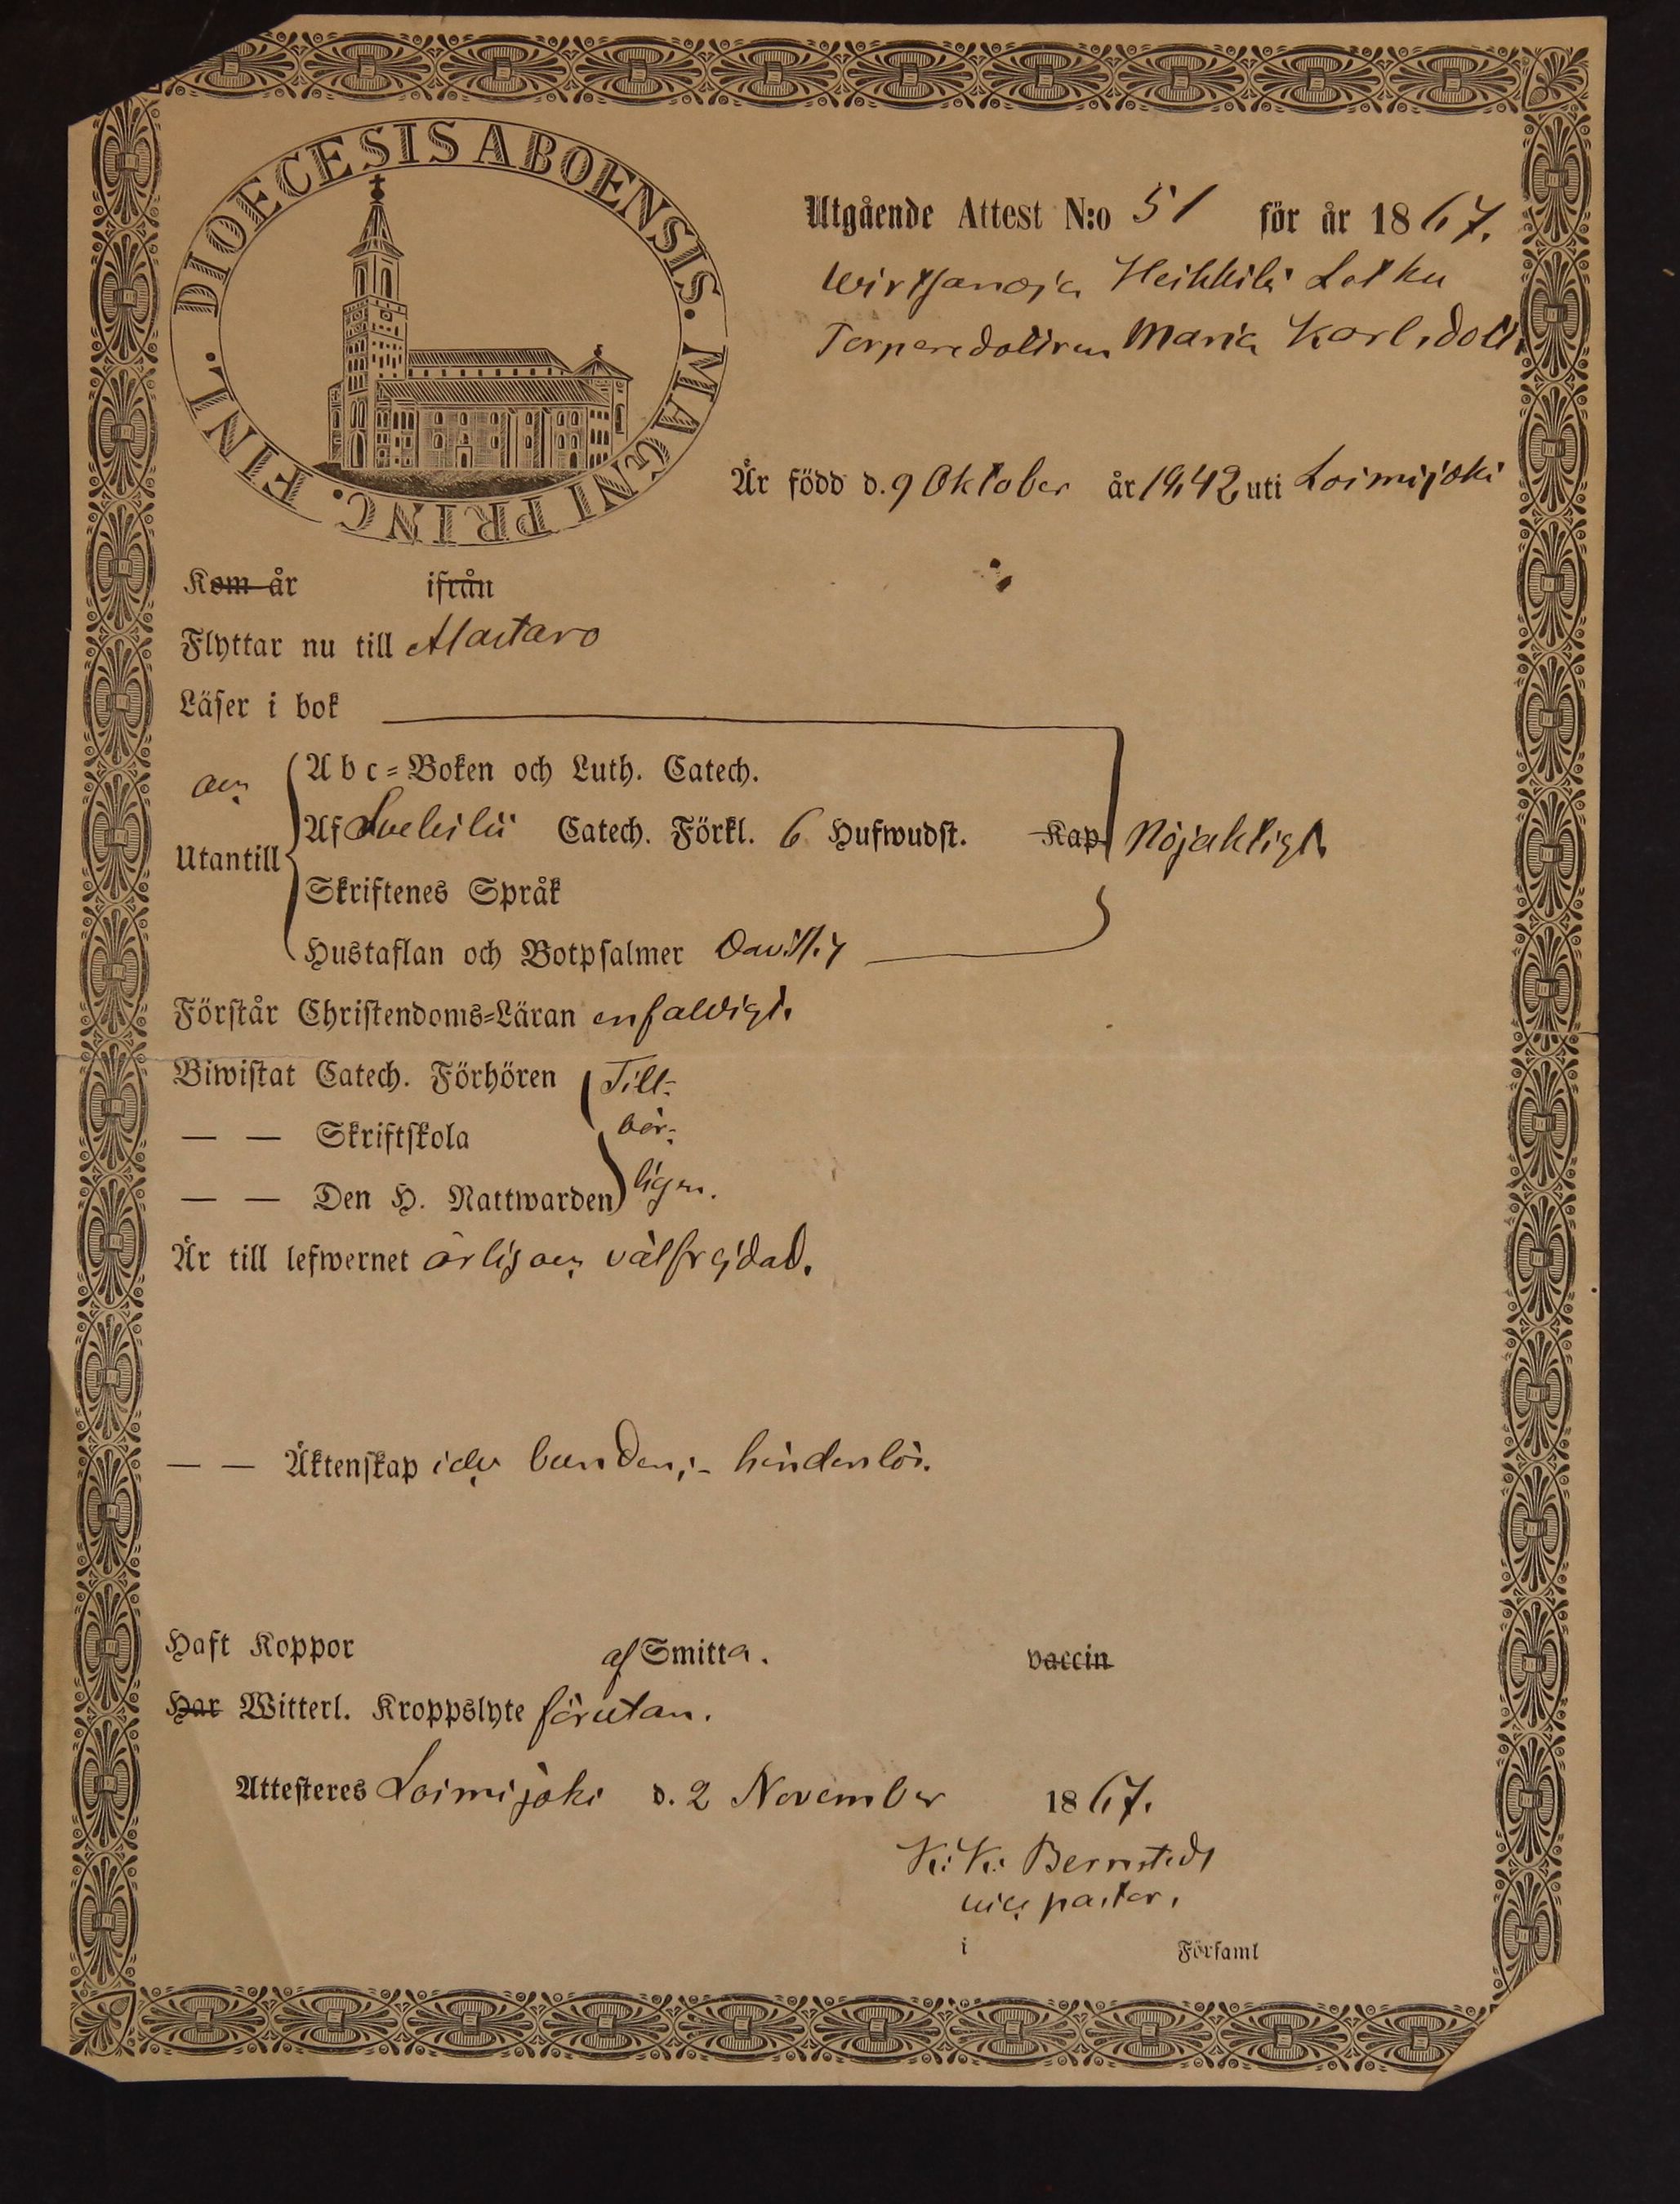 DIOECESIS ABOENSIS. MAGNI PRINC. FINL.
Utgående Attest N:o 51 för år 1867.
Wirtsanoja Heikkilä Letku
Torparedottren Maria Karlsdotr
Är född d. 9 Oktober år 1842 uti Loimijoki
Kom år ifrån
Flyttar nu till Alastaro
Läser i bok
och
Abc-Boken och Luth. Catech.
Af Svebilii Catech. Förkl. 6 Hufwudst. Kap. Nöjaktigt.
Utantill
Skriftenes Språk
Hustaflan och Botpsalmer
Förstår Christendoms-Läran enfaldigt.
Biwistat Catech. Förhören Till-
— — Skriftskola bör-
— — Den H. Nattwarden ligen.
Är till lefwernet ärlig och välfrejdad.
— — Äktenskap icke bunden;- hinderlös.
Haft Koppor af Smitta. vaccin
Har Witterl. Kroppslyte förutan.
Attesteres Loimijoki d. 2 November 1867.
K: K: Bernstedt
vice pastor.
i Församl